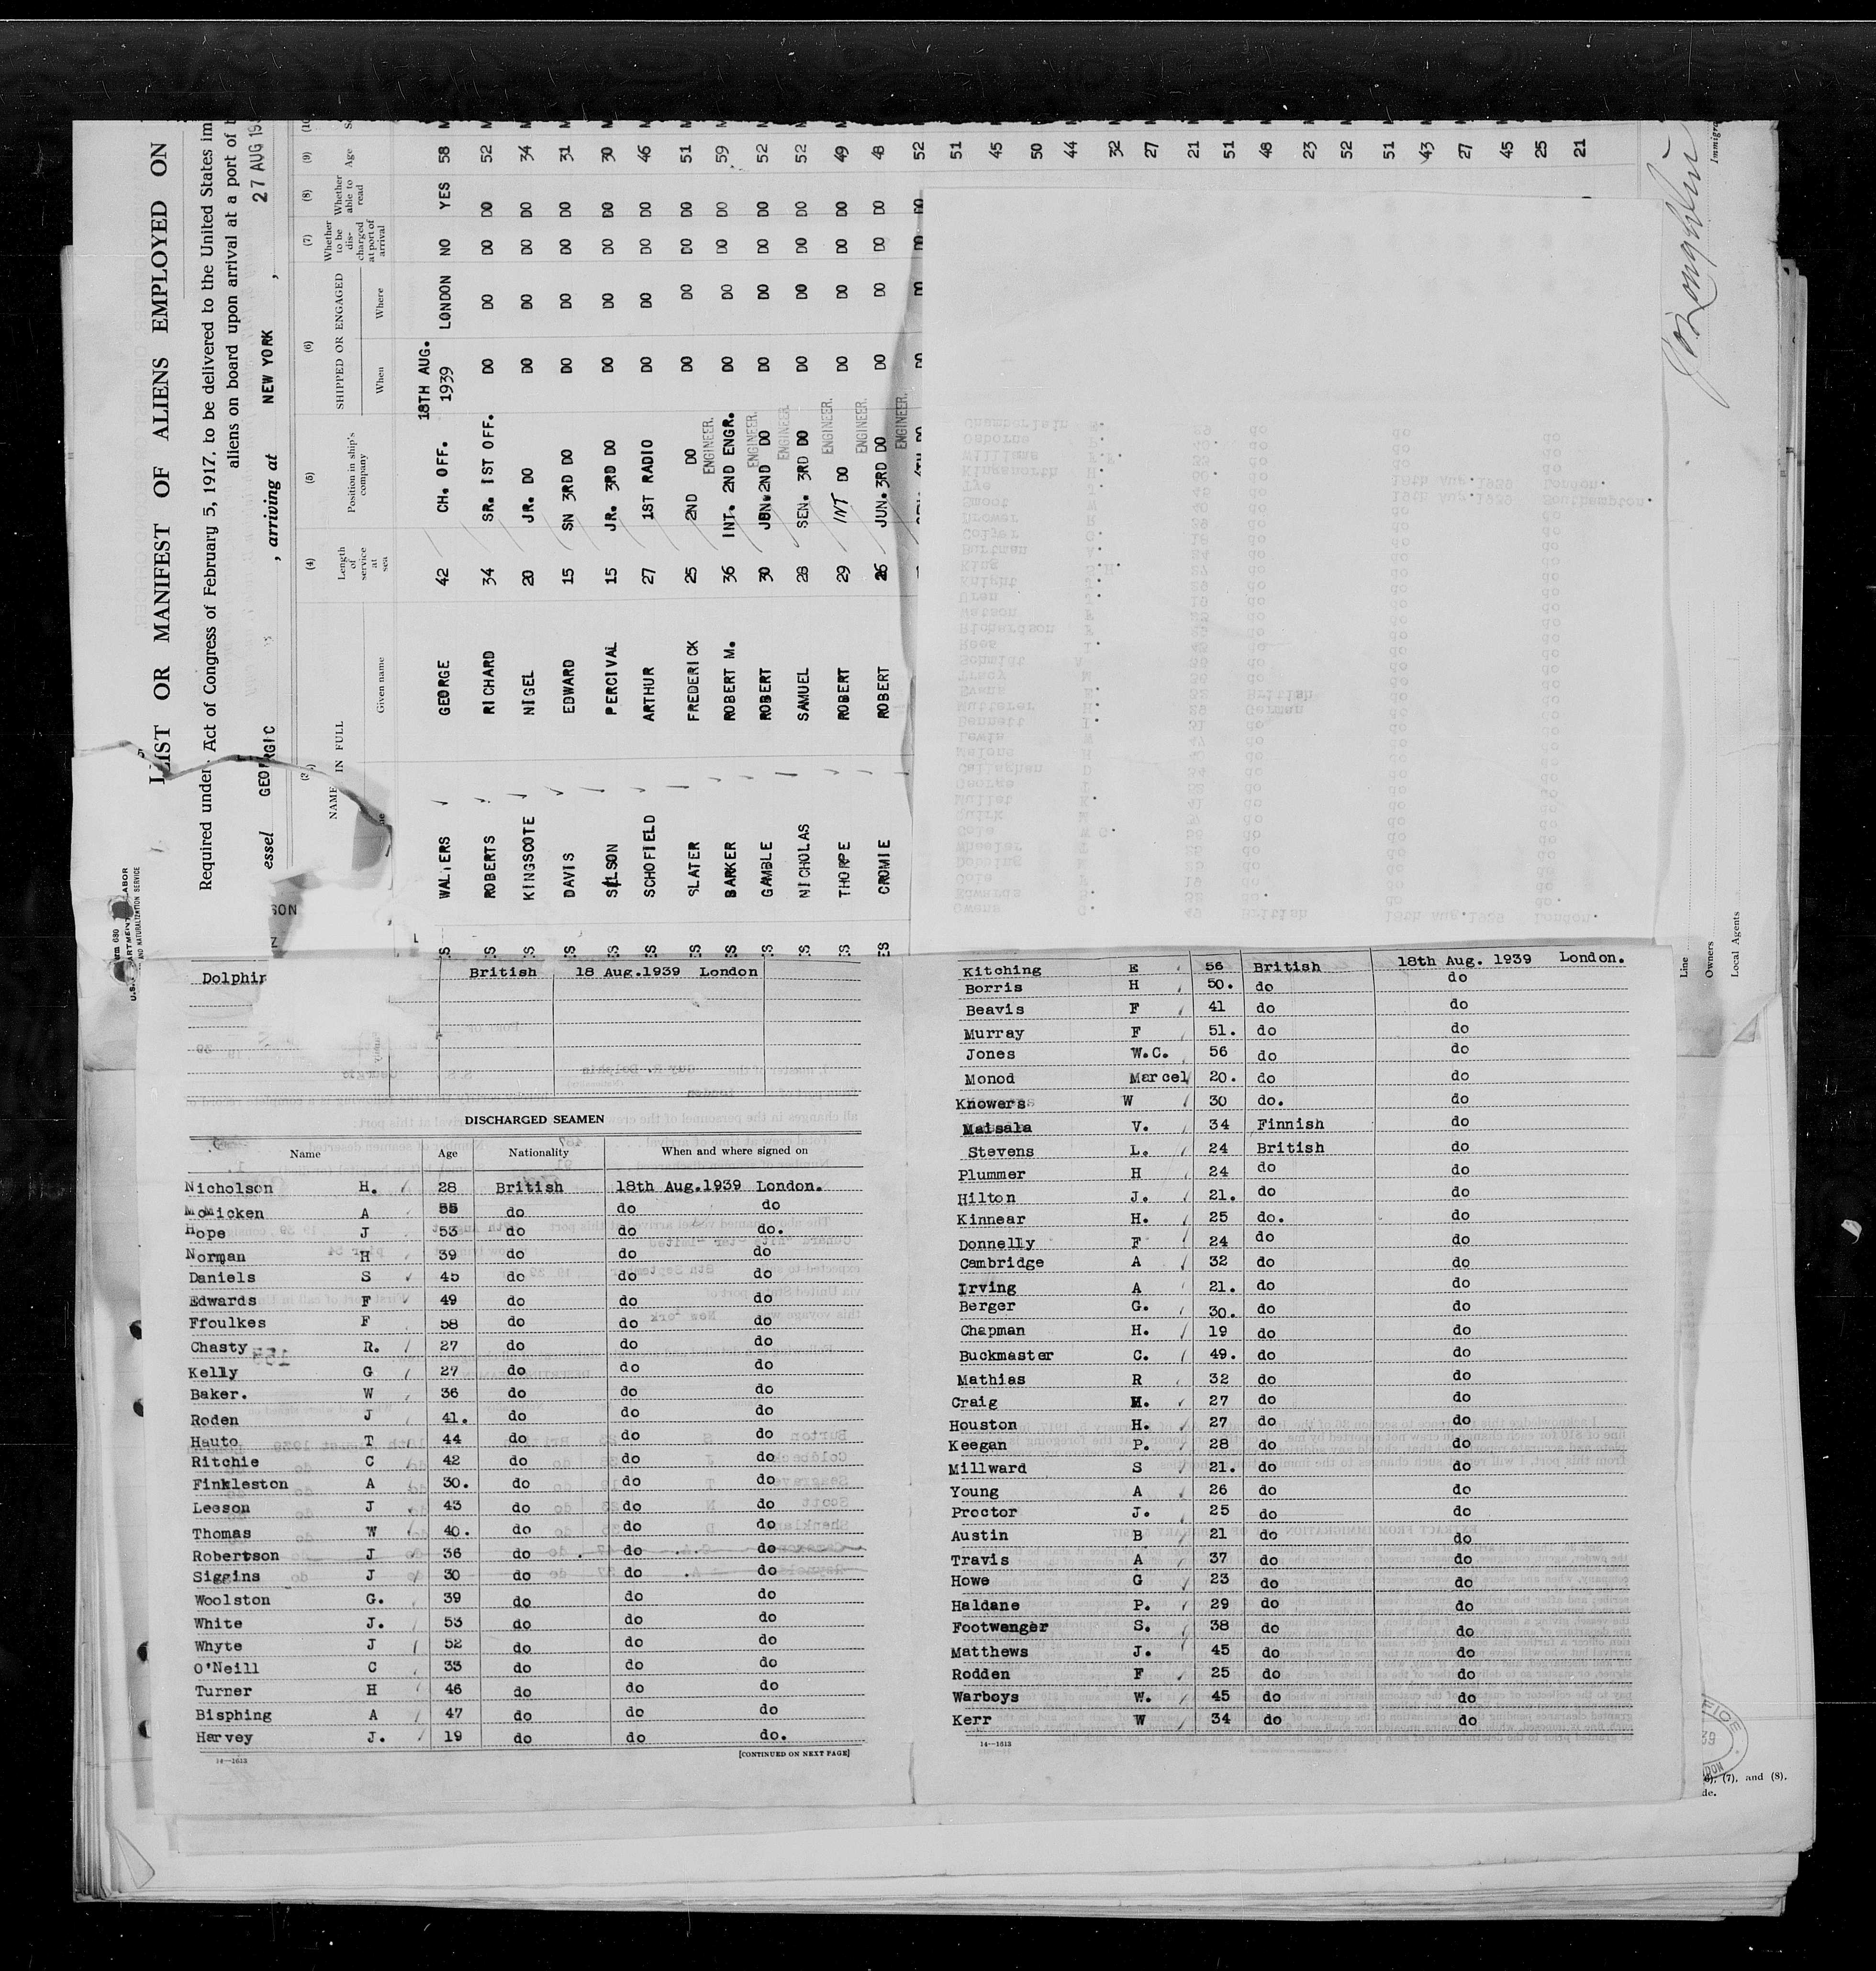 LIST OR MANIFEST OF ALIENS EMPLOYED ON
Required under Act of Congress of February 5, 1917, to be delivered to the United States im
aliens on board upon arrival at a port of
essel GEORGIC , arriving at NEW YORK , 27 AUG 193
(4) (5) (6) (7) (8) (9)
NAME IN FULL Given name
Length of service at sea
Position in ship's company
SHIPPED OR ENGAGED When Where
Whether to be discharged at port of arrival
Whether able to read
Age
WALTERS GEORGE 42 CH. OFF. 18TH AUG. 1939 LONDON NO YES 58
ROBERTS RICHARD 34 SR. 1ST OFF. DO DO DO DO 52
KINGSCOTE NIGEL 20 JR. DO DO DO DO DO 34
DAVIS EDWARD 15 SN 3RD DO DO DO DO DO 31
SELSON PERCIVAL 15 JR. 3RD DO DO DO DO DO 30
SCHOFIELD ARTHUR 27 1ST RADIO DO DO DO DO 46
SLATER FREDERICK 25 2ND DO DO DO DO DO 51
BARKER ROBERT M. 36 INT. 2ND ENGR. ENGINEER. DO DO DO DO 59
GAMBLE ROBERT 30 JUN. 2ND DO ENGINEER. DO DO DO DO 52
NICHOLAS SAMUEL 28 SEN. 3RD DO ENGINEER. DO DO DO DO 52
THORPE ROBERT 29 INT DO ENGINEER. DO DO DO DO 49
CROMIE ROBERT 26 JUN. 3RD DO ENGINEER. DO DO DO DO 48
ENGINEER. DO DO DO DO 52
51
45
50
44
32
27
21
51
48
23
52
51
43
27
45
25
21
Line
Owners
Local Agents
(7), and (8).
Dolphin British 18 Aug.1939 London
DISCHARGED SEAMEN
Name Age Nationality When and where signed on
Nicholson H. 28 British 18th Aug.1939 London.
McMicken A 55 do do do
Hope J 53 do do do.
Norman H 39 do do do
Daniels S 45 do do do
Edwards F 49 do do do
Ffoulkes F 58 do do do
Chasty R. 27 do do do
Kelly G 27 do do do
Baker. W 36 do do do
Roden J 41. do do do
Hauto T 44 do do do
Ritchie C 42 do do do
Finkleston A 30. do do do
Leeson J 43 do do do
Thomas W 40. do do do
Robertson J 36 do do do
Siggins J 30 do do do
Woolston G. 39 do do do
White J. 53 do do do
Whyte J 52 do do do
O'Neill C 33 do do do
Turner H 46 do do do
Bisphing A 47 do do do
Harvey J. 19 do do do.
14—1613 [CONTINUED ON NEXT PAGE]
Kitching E 56 British 18th Aug. 1939 London.
Borris H 50. do do
Beavis F 41 do do
Murray F 51. do do
Jones W.C. 56 do do
Monod Marcel 20. do do
Knowers W 30 do. do
Maisala V. 34 Finnish do
Stevens L. 24 British do
Plummer H 24 do do
Hilton J. 21. do do
Kinnear H. 25 do. do
Donnelly F 24 do do
Cambridge A 32 do do
Irving A 21. do do
Berger G. 30. do do
Chapman H. 19 do do
Buckmaster C. 49. do do
Mathias R 32 do do
Craig M. 27 do do
Houston H. 27 do do
Keegan P. 28 do do
Millward S 21. do do
Young A 26 do do
Proctor J. 25 do do
Austin B 21 do do
Travis A 37 do do
Howe G 23 do do
Haldane P. 29 do do
Footwenger S. 38 do do
Matthews J. 45 do do
Rodden F 25 do do
Warboys W. 45 do do
Kerr W 34 do do
14—1613